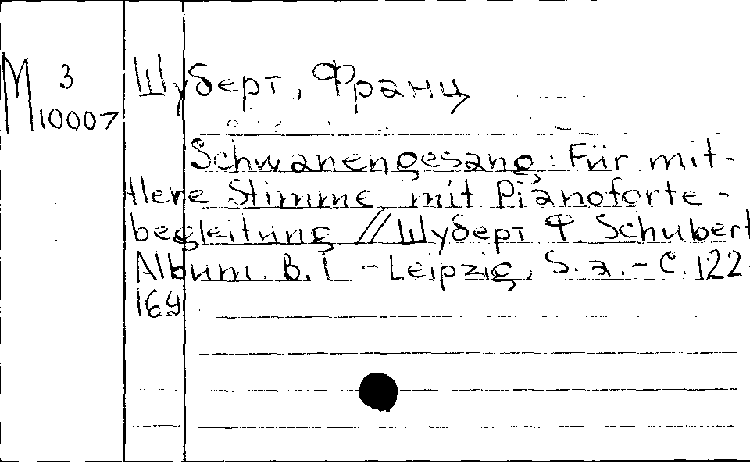 М 3
10007
Шуберт, Франц
Schwanengesang: Für mit-
tlere Stimme mit Pianoforte-
begleitung // Шуберт Ф. Schubert
Album. B. I. - Leipzig, S. a. - С. 122-
169